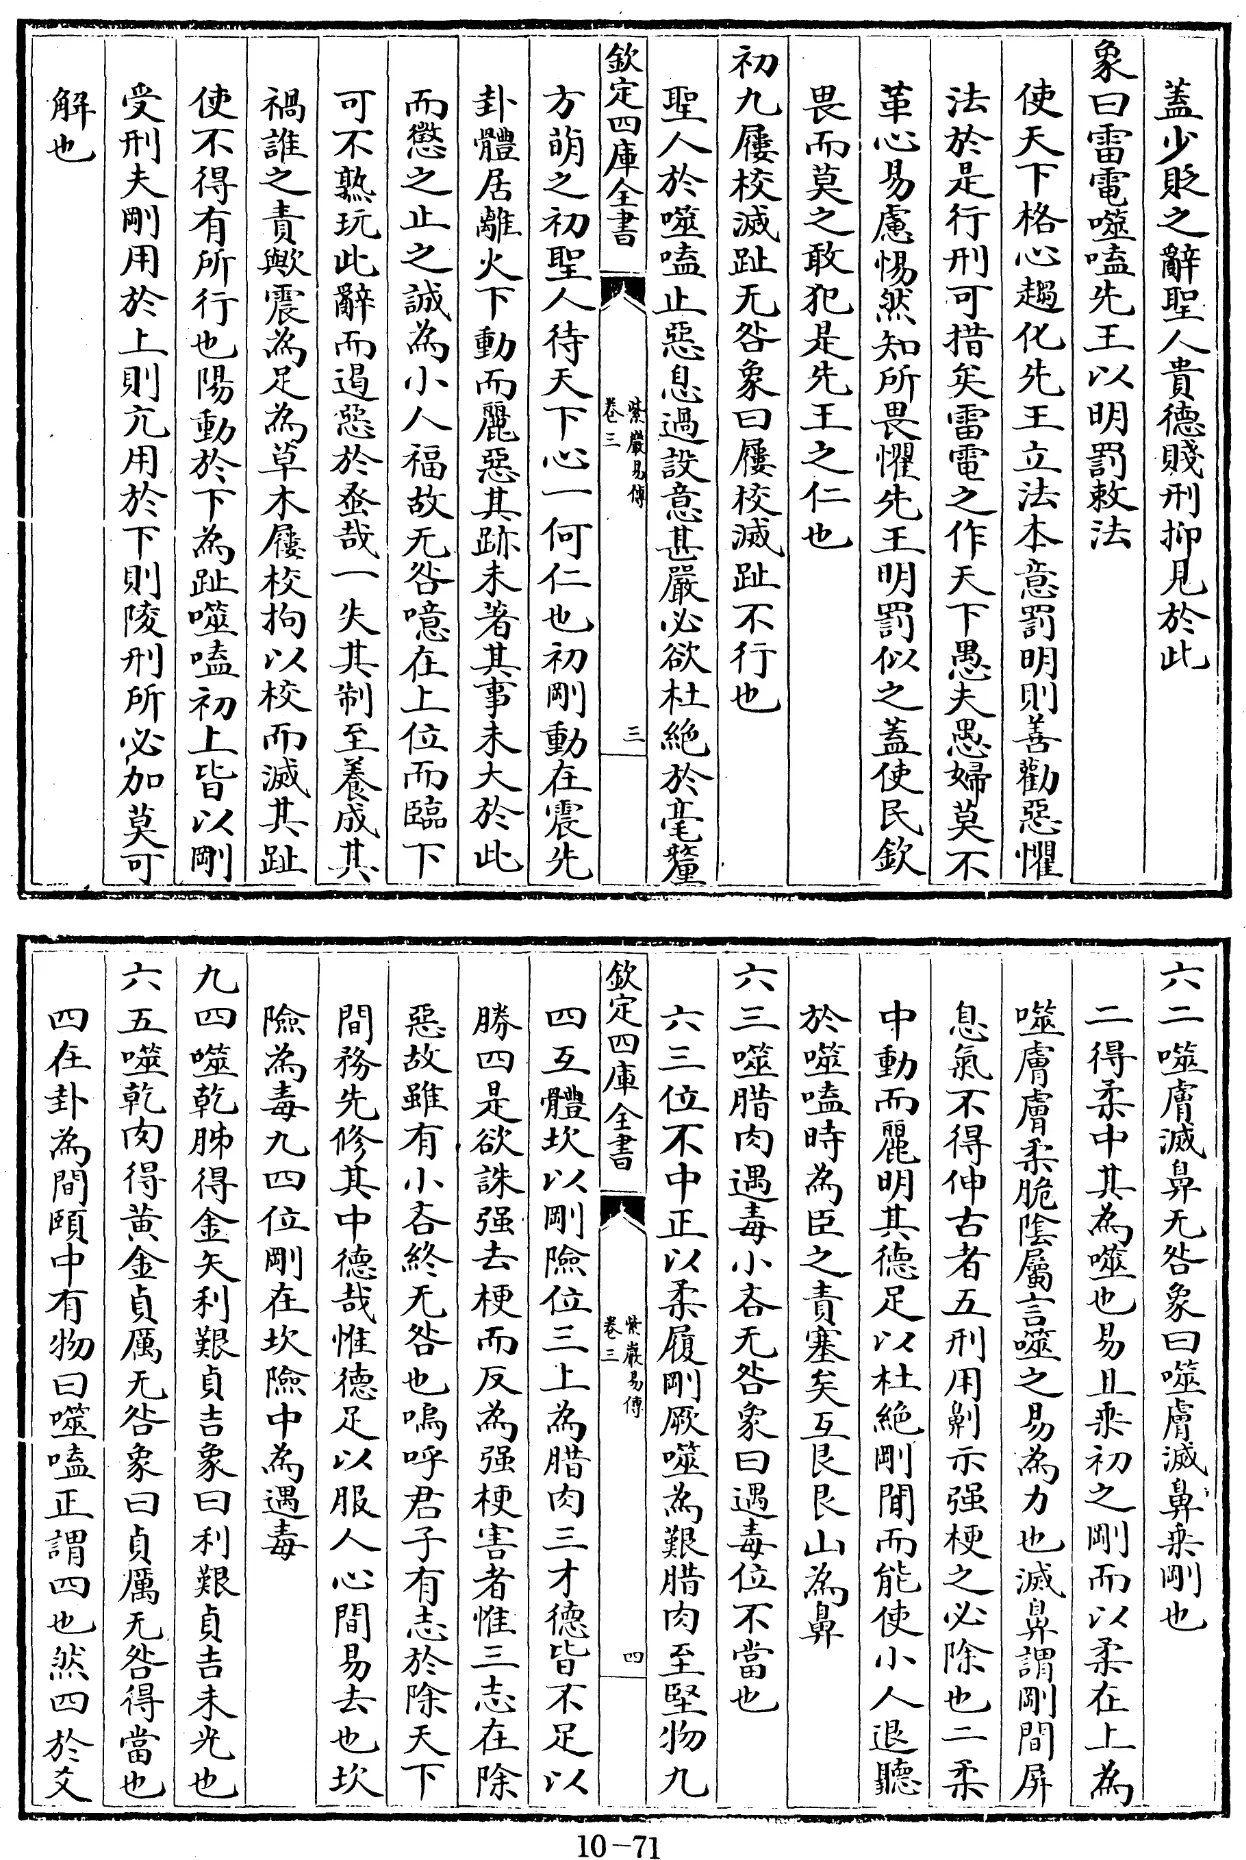 蓋少貶之辭聖人貴德賤刑抑見於此
象曰雷電噬嗑先王以明罰敕法
使天下格心趨化先王立法本意罰明則善勸惡懼
法於是行刑可措矣雷電之作天下愚夫愚婦莫不
革心易慮惕然知所畏懼先王明罰似之蓋使民欽
畏而莫之敢犯是先王之仁也
初九屨校滅趾无咎象曰屨校滅趾不行也
聖人於噬嗑止惡息過設意甚嚴必欲杜絕於毫釐
欽定四庫全書
紫巖易傳
卷三
三
方萌之初聖人待天下心一何仁也初剛動在震先
卦體居離火下動而麗惡其跡未著其事未大於此
而懲之止之誠為小人福故无咎噫在上位而臨下
可不熟玩此辭而遏惡於蚤哉一失其制至養成其
禍誰之責歟震為足為草木屨校拘以校而滅其趾
使不得有所行也陽動於下為趾噬嗑初上皆以剛
受刑夫剛用於上則亢用於下則陵刑所必加莫可
解也
六二噬膚滅鼻无咎象曰噬膚滅鼻乘剛也
二得柔中其為噬也易且乘初之剛而以柔在上為
噬膚膚柔脆陰屬言噬之易為力也滅鼻謂剛間屏
息氣不得伸古者五刑用劓示强梗之必除也二柔
中動而麗明其德足以杜絕剛間而能使小人退聽
於噬嗑時為臣之責塞矣互艮艮山為鼻
六三噬腊肉遇毒小吝无咎象曰遇毒位不當也
六三位不中正以柔履剛厥噬為艱腊肉至堅物九
欽定四庫全書
紫巖易傳
卷三
四
四互體坎以剛險位三上為腊肉三才德皆不足以
勝四是欲誅强去梗而反為强梗害者惟三志在除
惡故雖有小吝終无咎也嗚呼君子有志於除天下
間務先修其中德哉惟德足以服人心間易去也坎
險為毒九四位剛在坎險中為遇毒
九四噬乾胏得金矢利艱貞吉象曰利艱貞吉未光也
六五噬乾肉得黄金貞厲无咎象曰貞厲无咎得當也
四在卦為間頤中有物曰噬嗑正謂四也然四於爻
10-71